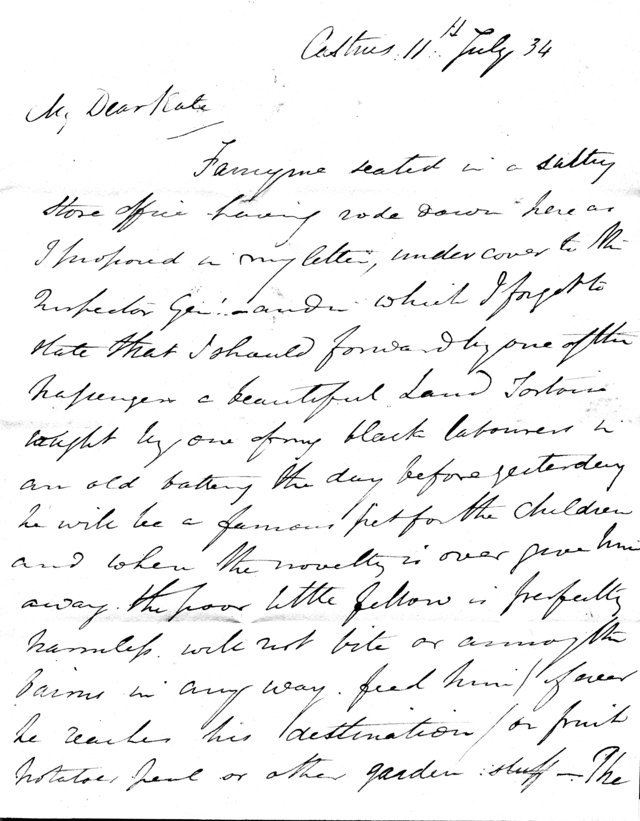 Castries 11th July 34
My Dear Kate
Fancy me seated in a sultry
store office having rode down here as
I proposed in my letter, under cover to the
Inspector Genl. and in which I forgot to
state that I should forward by one of the
passengers a beautiful Land Tortoise
caught by one of my black labourers in
an old battery the day before yesterday
he will be a famous pet for the children
and when the novelty is over give him
away. the poor little fellow is perfectly
harmless will not bite or annoy the
bairns in any way. feed him / if ever
he reaches his destination / on fruit
potatoe peel or other garden stuff — The